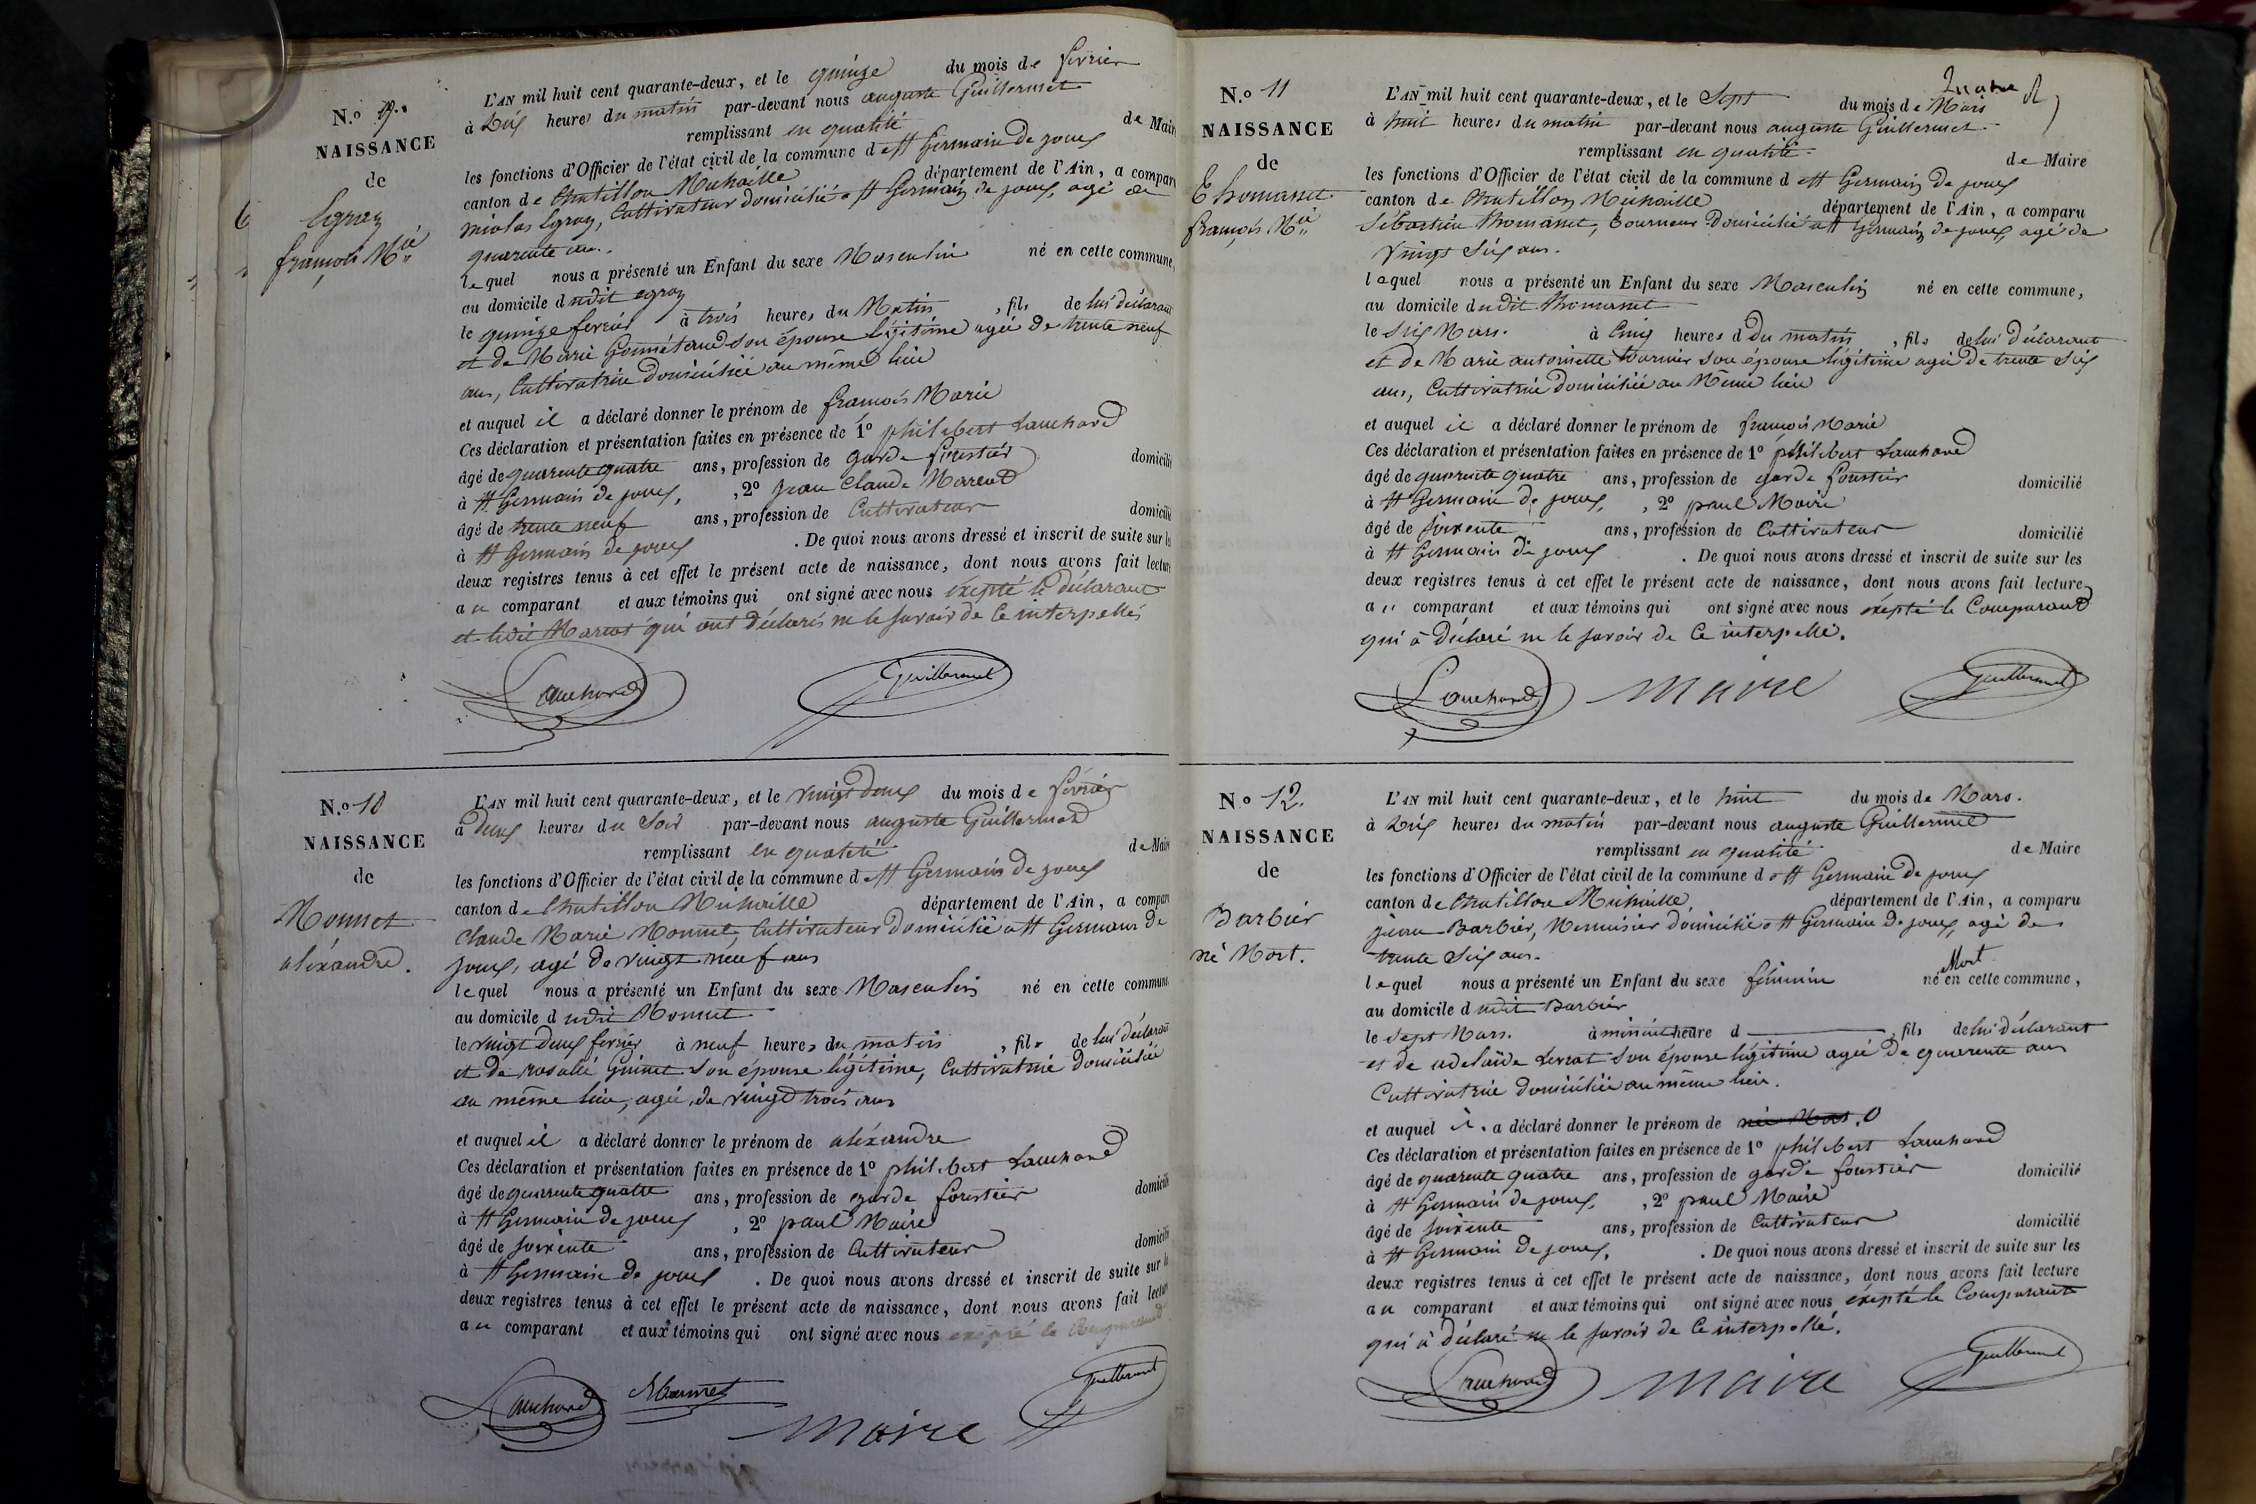 N.º 9.
NAISSANCE
de
Egraz
françois Mie
L'AN mil huit cent quarante-deux, et le quinze du mois de février
à Dix heures du matin par-devant nous auguste Guillermet
remplissant en qualité de Mair
les fonctions d'Officier de l'état civil de la commune d e St Germain de joux
canton de Chatillon Michaille département de l'Ain, a compar
nicolas Egraz, Cultivateur domicilié a St Germain de joux, agé de
quarente ans.
lequel nous a présenté un Enfant du sexe Masculin né en cette commune,
au domicile dudit egraz
le quinze fevrier à trois heures du Matin, fils de lui déclarant
et de Marie son épouse légitime agée de trente neuf
ans, Cultivatrice domiciliée au même lieu
et auquel il a déclaré donner le prénom de françois Marie
Ces déclaration et présentation faites en présence de 1º philibert Lauchard
âgé de quarente quatre ans, profession de garde forestier domicilié
à St Germain de joux, , 2º jean Claude Marcod
âgé de trente neuf ans, profession de Cultivateur domicilié
à St Germain de joux . De quoi nous avons dressé et inscrit de suite sur le
deux registres tenus à cet effet le présent acte de naissance, dont nous avons fait lecture
au comparant et aux témoins qui ont signé avec nous éxepté le déclarant
et ledit Marcod qui ont déclarés ne le savoir de Ce interpellés
Lauchard Guillermet
N.º 10
NAISSANCE
de
Monnet
aléxandre.
L'AN mil huit cent quarante-deux, et le vingt deux du mois de février
à deux heures du Soir par-devant nous auguste Guillermet
remplissant en qualité de Mair
les fonctions d'Officier de l'état civil de la commune d e St Germain de joux
canton de Chatillon Michaille département de l'Ain, a compar
Claude Marie Monnet, Cultivateur domicilié a St Germain de
joux, agé de vingt neuf ans
lequel nous a présenté un Enfant du sexe Masculin né en cette commune
au domicile dudit Monnet
le vingt deux fevrier à neuf heures du matin, fils de lui déclarant
et de rosalie Guinet son épouse légitime, Cultivatrice domiciliée
au même lieu, agée de vingt trois ans
et auquel il a déclaré donner le prénom de aléxandre
Ces déclaration et présentation faites en présence de 1º philibert Lauchard
âgé de quarente quatre ans, profession de garde forestier domicilié
à St Germain de joux , 2º paul Maire
âgé de soixente ans, profession de Cultivateur domicilié
à St Germain de joux . De quoi nous avons dressé et inscrit de suite sur le
deux registres tenus à cet effet le présent acte de naissance, dont nous avons fait lecture
au comparant et aux témoins qui ont signé avec nous
Lauchard Monnet Maire Guillermet
N.º 11
NAISSANCE
de
Thomasset
françois Mie
L'AN mil huit cent quarante-deux, et le Sept du mois de Mars
à huit heures du matin par-devant nous auguste Guillermet
remplissant en qualité de Maire
les fonctions d'Officier de l'état civil de la commune d e St Germain de joux
canton de Chatillon Michaille département de l'Ain, a comparu
Sébastien Thomasset, tourneur domicilié a St Germain de joux, agé de
Vingt Six ans.
lequel nous a présenté un Enfant du sexe Masculin né en cette commune,
au domicile dudit Thomasset
le Six Mars. à Cinq heures d du matin, fils de lui déclarant
et de Marie antoinette son épouse légitime agée de trente Six
ans, Cultivatrice domiciliée au Même lieu
et auquel il a déclaré donner le prénom de françois Marie
Ces déclaration et présentation faites en présence de 1º philibert Lauchard
âgé de quarente quatre ans, profession de garde forestier domicilié
à St Germain de joux, , 2º paul Maire
âgé de soixente ans, profession de Cultivateur domicilié
à St Germain de joux . De quoi nous avons dressé et inscrit de suite sur les
deux registres tenus à cet effet le présent acte de naissance, dont nous avons fait lecture
au comparant et aux témoins qui ont signé avec nous éxepté le Comparand
qui à déclaré ne le savoir de Ce interpellé.
Lauchard Maire Guillermet
N.º 12.
NAISSANCE
de
Barbier
né Mort.
L'AN mil huit cent quarante-deux, et le huit du mois de Mars.
à Dix heures du matin par-devant nous auguste Guillermet
remplissant en qualité de Maire
les fonctions d'Officier de l'état civil de la commune d e St Germain de joux
canton de Chatillon Michaille département de l'Ain, a comparu
jean Barbier, Menuisier domicilié a St Germain de joux, agé de
trente Six ans.
lequel nous a présenté un Enfant du sexe féminin né Mort en cette commune,
au domicile dudit Barbier
le Sept Mars. à minuit heure d , fils de lui déclarant
et de adelaïde son épouse légitime agée de quarente ans
Cultivatrice domiciliée au même lieu.
et auquel i. a déclaré donner le prénom de
Ces déclaration et présentation faites en présence de 1º philibert Lauchard
âgé de quarente quatre ans, profession de garde forestier domicilié
à St Germain de joux, , 2º paul Maire
âgé de soixente ans, profession de Cultivateur domicilié
à St Germain de joux, . De quoi nous avons dressé et inscrit de suite sur les
deux registres tenus à cet effet le présent acte de naissance, dont nous avons fait lecture
au comparant et aux témoins qui ont signé avec nous éxepté le Comparant
qui à déclaré ne le savoir de Ce interpellé.
Lauchard Maire Guillermet